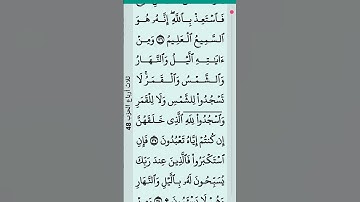 فَٱسۡتَعِذۡ بِٱللَّهِۖ إِنَّهُۥ هُوَ
ٱلسَّمِيعُ ٱلۡعَلِيمُ ٣٦ وَمِنۡ
ءَايَٰتِهِ ٱلَّيۡلُ وَٱلنَّهَارُ
وَٱلشَّمۡسُ وَٱلۡقَمَرُۚ لَا
تَسۡجُدُواْ لِلشَّمۡسِ وَلَا لِلۡقَمَرِ
وَٱسۡجُدُواْۤ لِلَّهِۤ ٱلَّذِي خَلَقَهُنَّ
إِن كُنتُمۡ إِيَّاهُ تَعۡبُدُونَ ٣٧ فَإِنِ
ٱسۡتَكۡبَرُواْ فَٱلَّذِينَ عِندَ رَبِّكَ
يُسَبِّحُونَ لَهُۥ بِٱلَّيۡلِ وَٱلنَّهَارِ
ثلاث أرباع الحزب 48